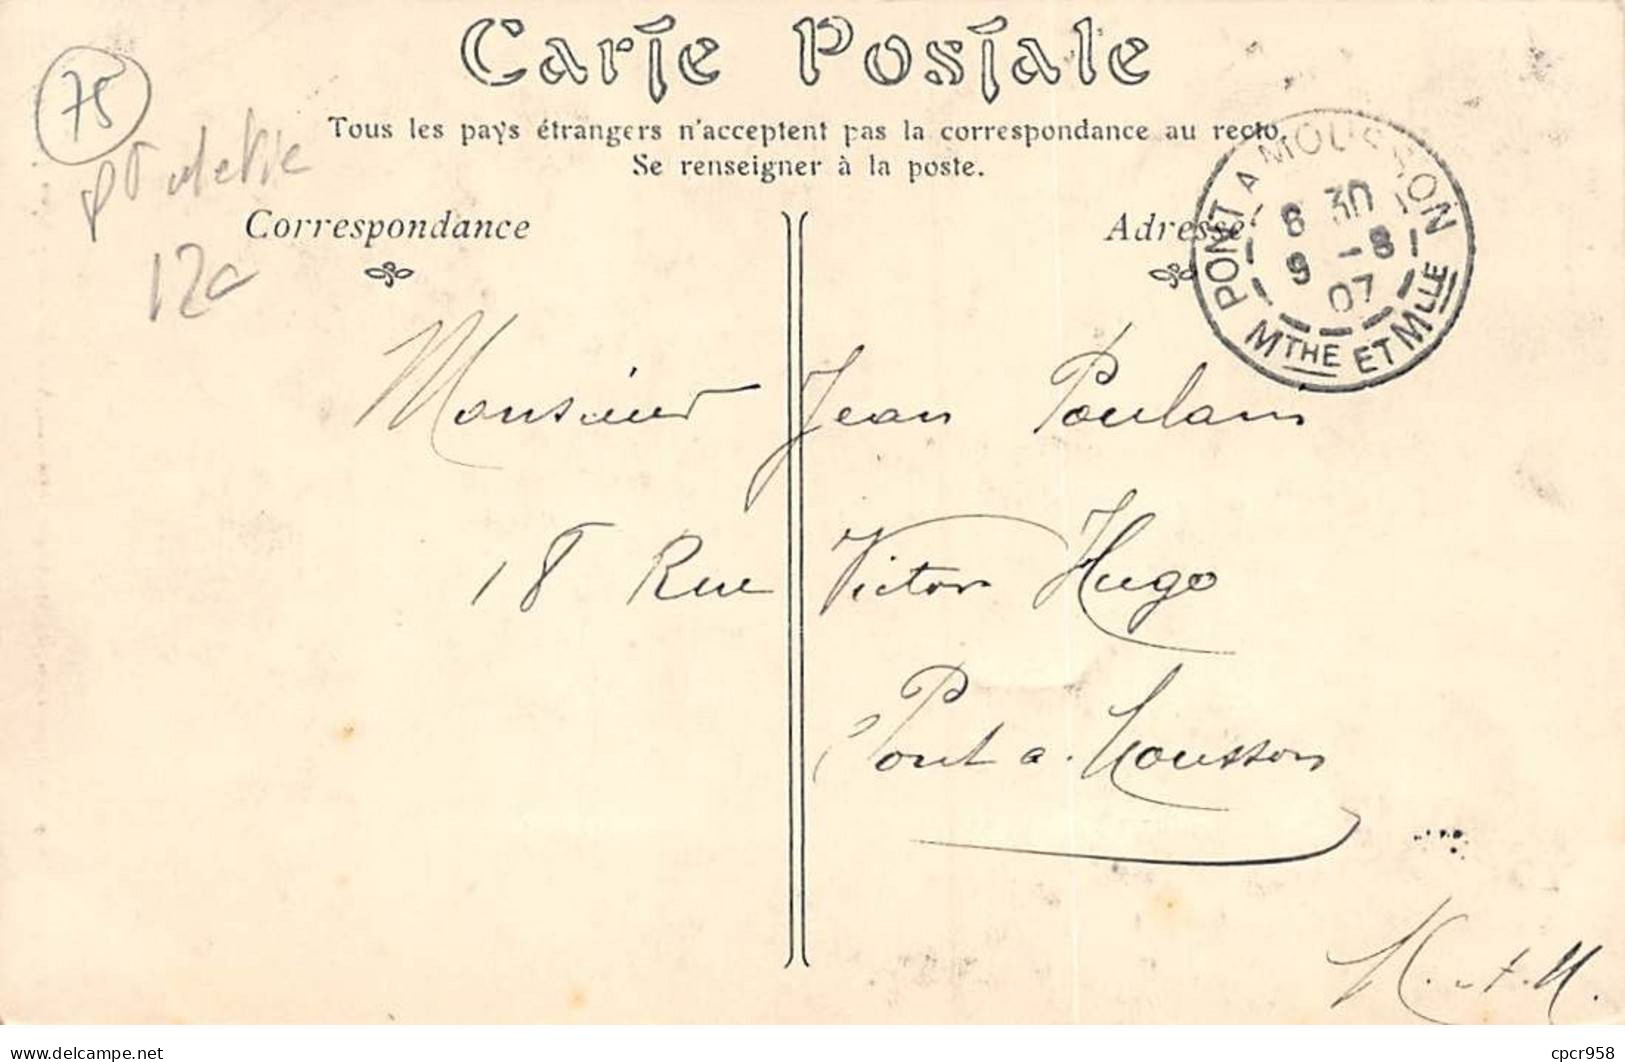 Carte Postale
Tous les pays étrangers n'acceptent pas la correspondance au recto.
Se renseigner à la poste.
75
12c
Correspondance
Adresse
PONT A MOUSSON
8 30
9 -8
07
MTHE ET MLLE
Monsieur Jean Poulain
18 Rue Victor Hugo
Pont a. Mousson
M. et M.
delcampe.net
cpcr958